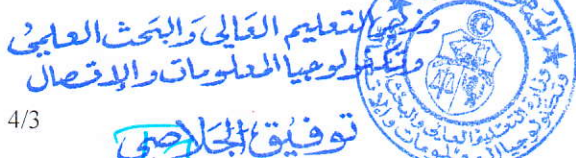 وزير التعليم العالي والبحث العلمي
وتكنولوجيا المعلومات والإتصال
4/3
توفيق الجلاصي